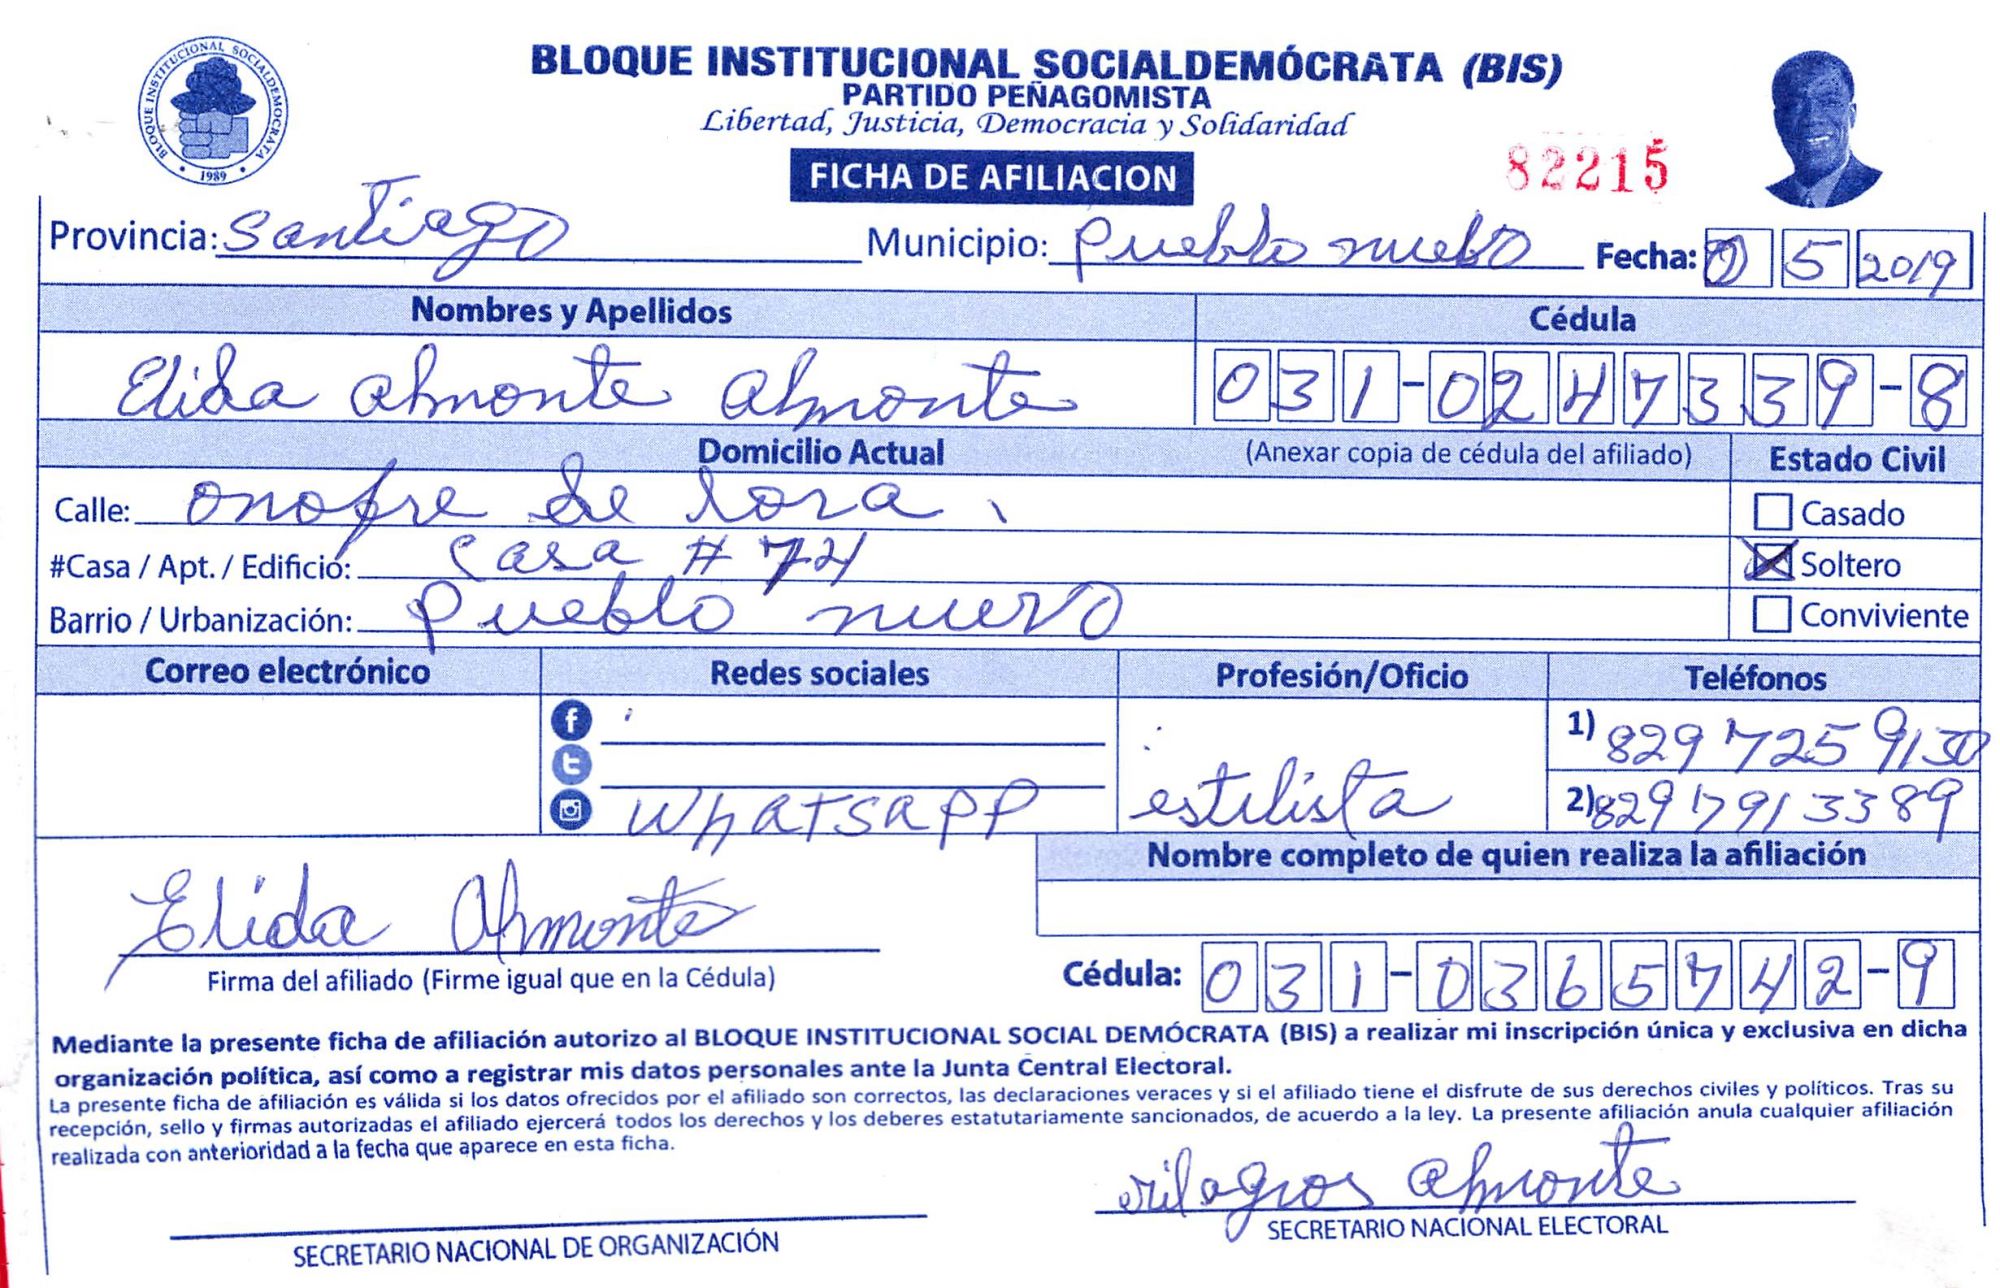 BLOQUE INSTITUCIONAL SOCIALDEMOCRATA
1989
BLOQUE INSTITUCIONAL SOCIALDEMÓCRATA (BIS)
PARTIDO PEÑAGOMISTA
Libertad, Justicia, Democracia y Solidaridad
FICHA DE AFILIACION
82215
Provincia: Santiago Municipio: Pueblo nuebo Fecha: 5 2019
Nombres y Apellidos Cédula
Elida Almonte Almonte 031-0247339-8
Domicilio Actual (Anexar copia de cédula del afiliado) Estado Civil
Calle: onofre de lora Casado
#Casa / Apt. / Edificio: Casa # 74 Soltero
Barrio / Urbanización: Pueblo nuevo Conviviente
Correo electrónico Redes sociales Profesión/Oficio Teléfonos
1) 829 725 9130
WhatsApp estilista 2) 829 791 3389
Nombre completo de quien realiza la afiliación
Elida Almonte
Firma del afiliado (Firme igual que en la Cédula) Cédula: 031-0365742-9
Mediante la presente ficha de afiliación autorizo al BLOQUE INSTITUCIONAL SOCIAL DEMÓCRATA (BIS) a realizar mi inscripción única y exclusiva en dicha
organización política, así como a registrar mis datos personales ante la Junta Central Electoral.
La presente ficha de afiliación es válida si los datos ofrecidos por el afiliado son correctos, las declaraciones veraces y si el afiliado tiene el disfrute de sus derechos civiles y políticos. Tras su
recepción, sello y firmas autorizadas el afiliado ejercerá todos los derechos y los deberes estatutariamente sancionados, de acuerdo a la ley. La presente afiliación anula cualquier afiliación
realizada con anterioridad a la fecha que aparece en esta ficha.
Milagros Almonte
SECRETARIO NACIONAL DE ORGANIZACIÓN SECRETARIO NACIONAL ELECTORAL